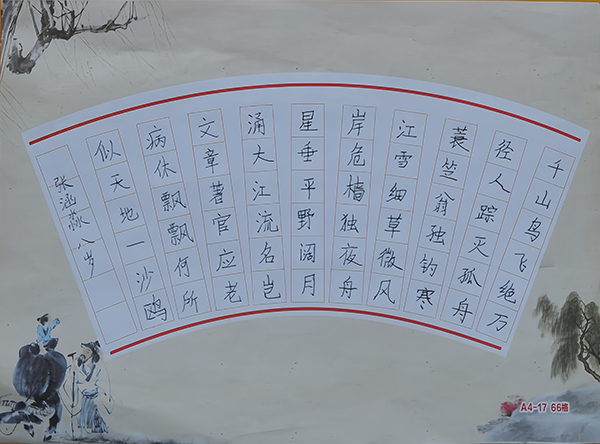 千山鸟飞绝万
径人踪灭孤舟
蓑笠翁独钓寒
江雪细草微风
岸危樯独夜舟
星垂平野阔月
涌大江流名岂
文章著官应老
病休飘飘何所
似天地一沙鸥
张涵淼八岁
A4-17 66格